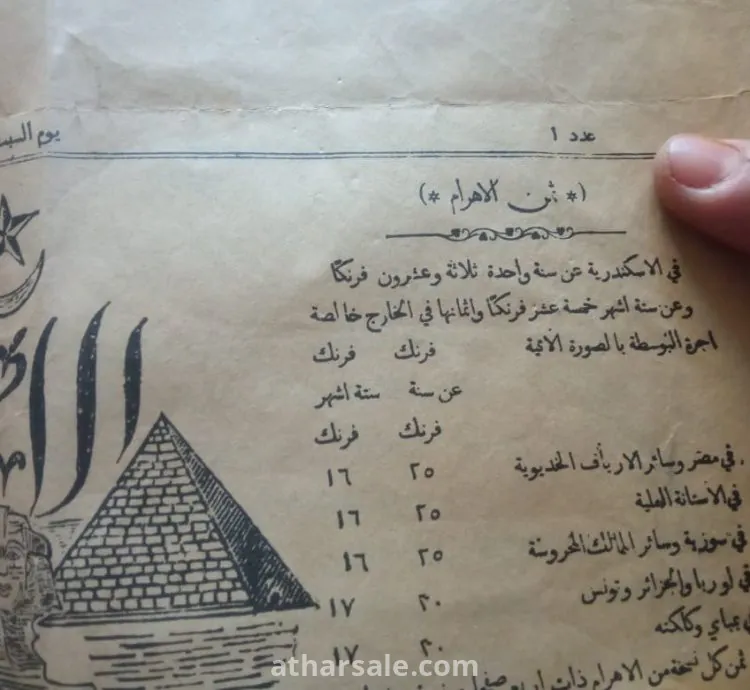 عدد ١
يوم السبت
(* ثمن الاهرام *)
في الاسكندرية عن سنة واحدة ثلاثة وعشرون فرنكًا
وعن ستة اشهر خمسة عشر فرنكًا واثمانها في الخارج خالصة
اجرة البوسطة بالصورة الآتية
فرنك فرنك
عن سنة ستة اشهر
فرنك فرنك
في مصر وسائر الارياف الخديوية ٢٥ ١٦
في الاستانة العلية ٢٥ ١٦
في سورية وسائر الممالك المحروسة ٢٥ ١٦
في اوربا والجزائر وتونس ٣٠ ١٧
في بمباي وكلكته ٣٠ ١٧
ثمن كل نسخة من الاهرام ذات اربع
الا
atharsale.com